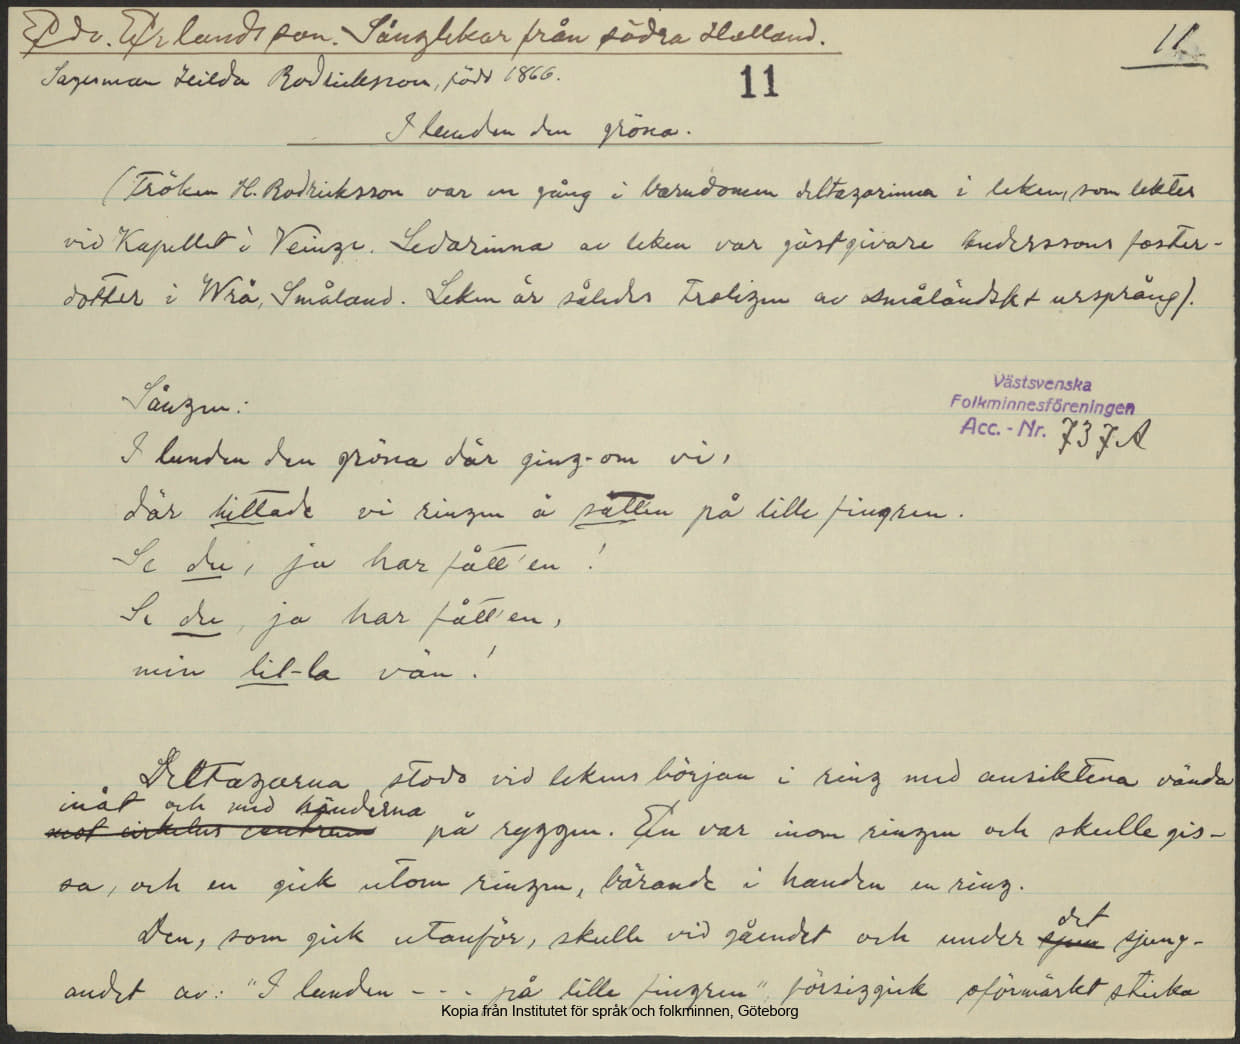 Edv. Erlandsson. Sånglekar från södra Halland.
11
Sagesman Hilda Rodriksson, född 1866.
11
I lunden den gröna.
(Fröken H. Rodriksson var en gång i barndomen deltagarinna i leken, som lektes
vid Kapellet i Veinge. Ledarinna av leken var gästgivare Anderssons foster-
dotter i Wrå, Småland. Leken är således troligen av småländskt ursprång).
Sången:
I lunden den gröna där ging-om vi,
där hittade vi ringen å satten på lille fingren.
Se du, ja har fått'en!
Se du, ja har fått'en,
min lil-la vän!
Västsvenska
Folkminnesföreningen
Acc. - Nr. 737A
Deltagarna stodo vid lekens början i ring med ansiktena vända
inåt och med händerna
mot cirkelns centrum på ryggen. En var inom ringen och skulle gis-
sa, och en gick utom ringen, bärande i handen en ring.
det
Den, som gick utanför, skulle vid gåendet och under sjun sjung-
andet av: "I lunden - - - på lille fingren", försiggick oförmärkt sticka
Kopia från Institutet för språk och folkminnen, Göteborg